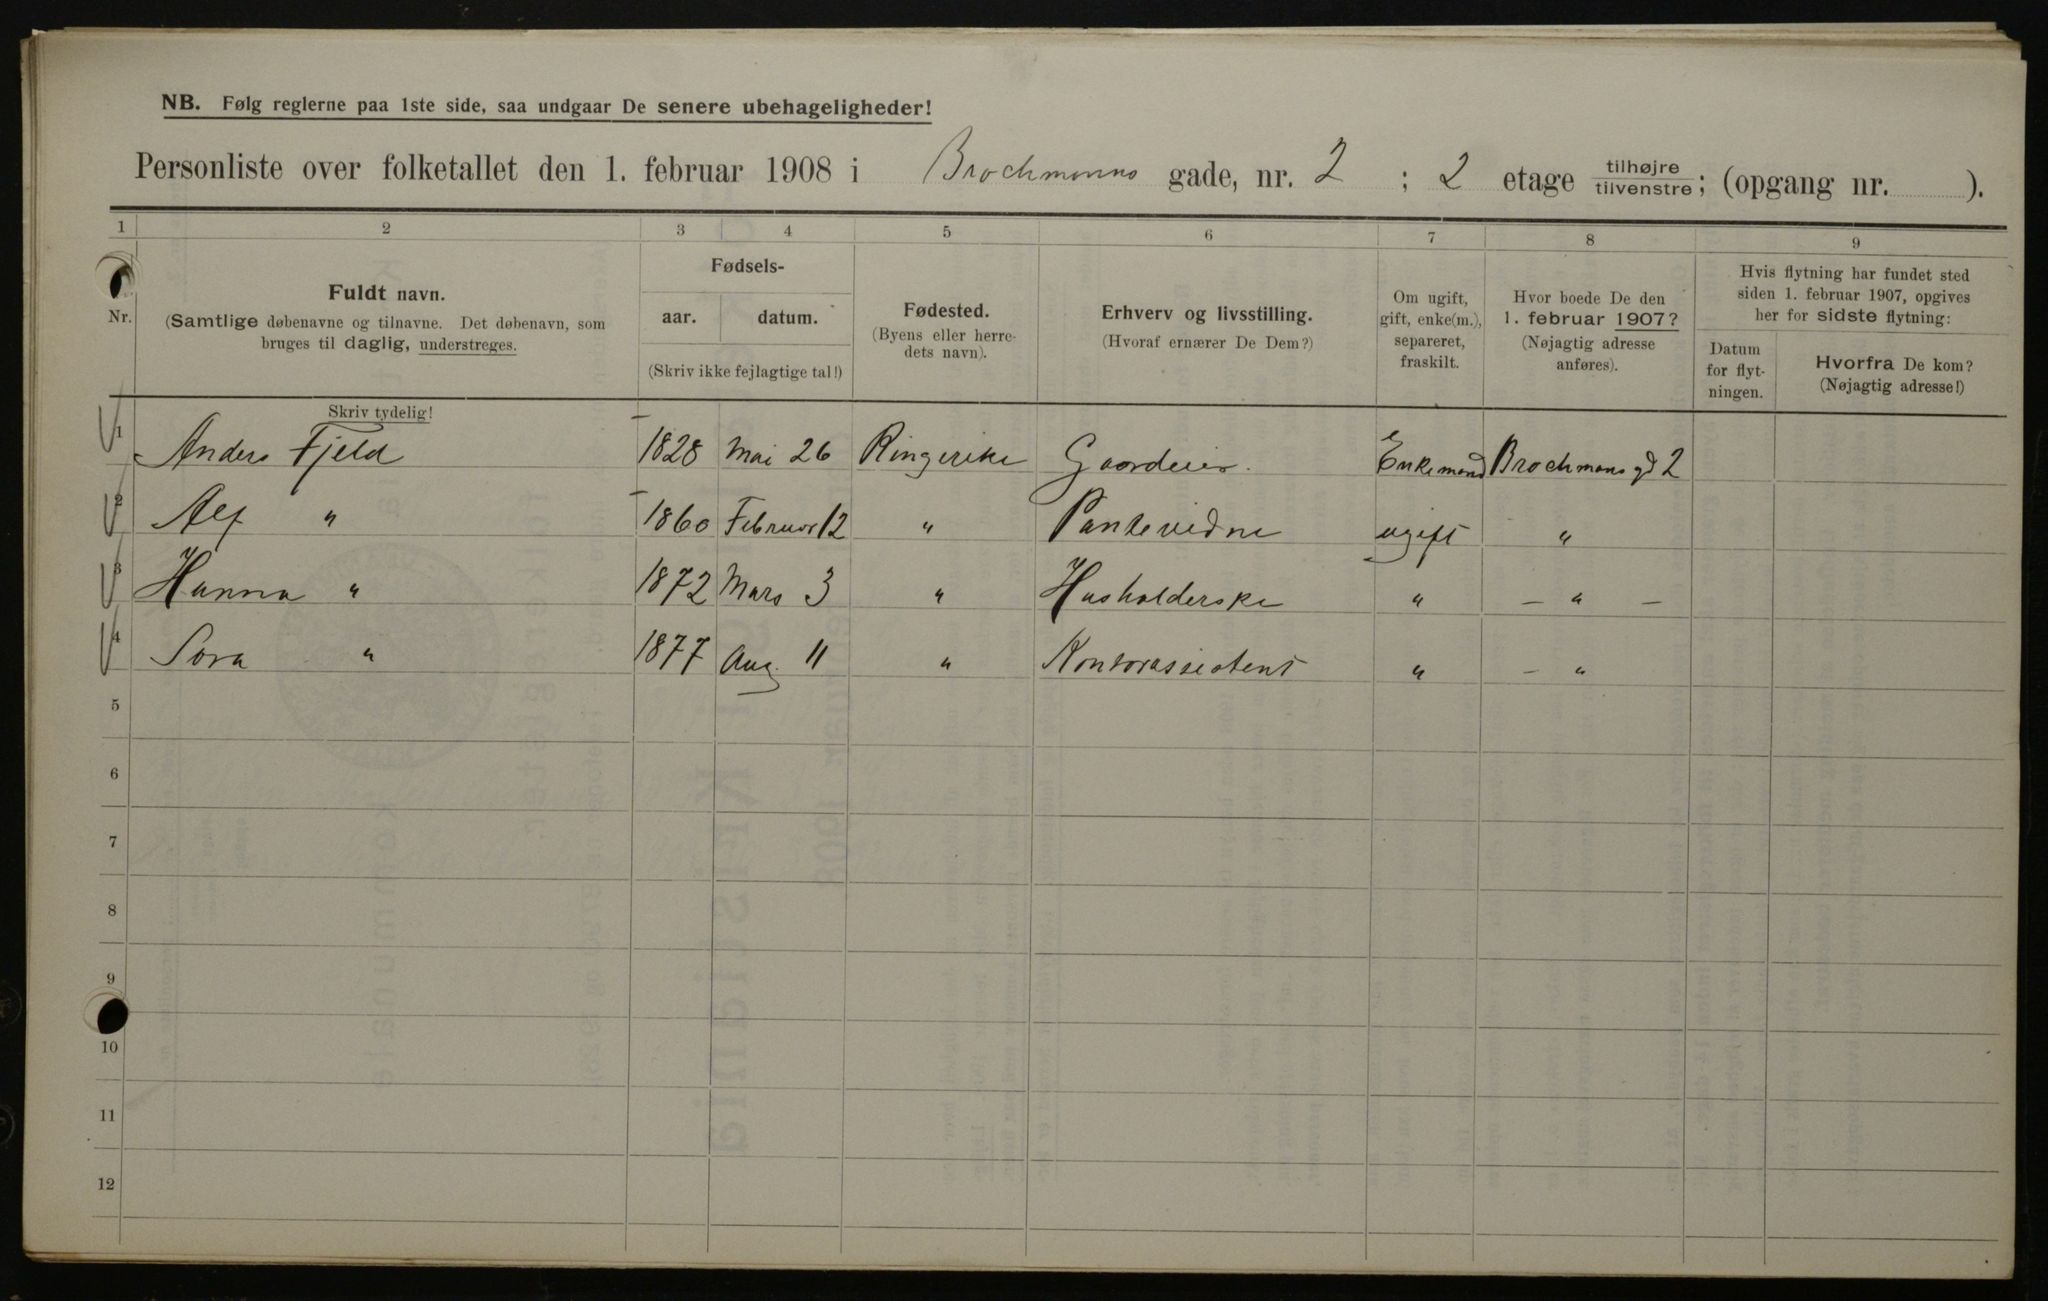 NB. Følg reglerne paa 1ste side, saa undgaar De senere ubehageligheder!
Personliste over folketallet den 1. februar 1908 i Brochmanns gade, nr. 2 ; 2 etage tilhøjre tilvenstre; (opgang nr. ).
1 2 3 4 5 6 7 8 9
Nr.
Fuldt navn.
(Samtlige døbenavne og tilnavne. Det døbenavn, som
bruges til daglig, understreges.
Skriv tydelig!
Fødsels-
aar. datum.
(Skriv ikke fejlagtige tal!)
Fødested.
(Byens eller herre-
dets navn).
Erhverv og livsstilling.
(Hvoraf ernærer De Dem?)
Om ugift,
gift, enke(m.),
separeret,
fraskilt.
Hvor boede De den
1. februar 1907?
(Nøjagtig adresse
anføres).
Hvis flytning har fundet sted
siden 1. februar 1907, opgives
her for sidste flytning:
Datum
for flyt-
ningen.
Hvorfra De kom?
(Nøjagtig adresse!)
1 Anders Fjeld 1828 Mai 26 Ringerike Gaardeier. Enkemand Brochmans gd 2
2 Alf " 1860 Februar 12 " Pantevidne ugift "
3 Hanna " 1872 Mars 3 " Husholderske " — " —
4 Sora " 1877 Aug. 11 " Kontorassistent " — "
5
6
7
8
9
10
11
12